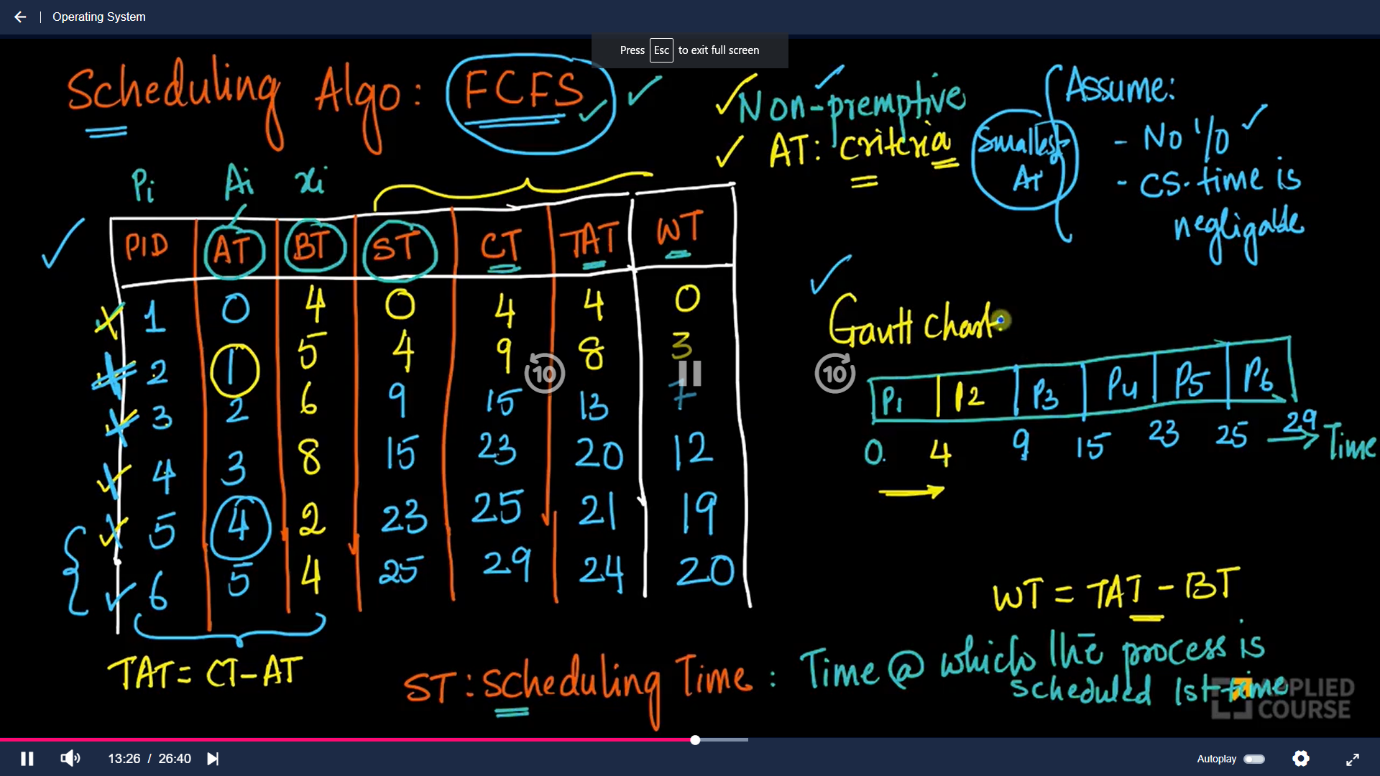 Operating System
Press Esc to exit full screen
Scheduling Algo: FCFS
Non-premptive
AT: criteria
Smallest
AT
Assume:
- No I/O
- CS. time is
negligable
Pi Ai xi
PID AT BT ST CT TAT WT
1 0 4 0 4 4 0
2 1 5 4 9 8 3
3 2 6 9 15 13 7
4 3 8 15 23 20 12
5 4 2 23 25 21 19
6 5 4 25 29 24 20
10
10
Gantt chart:
P1 P2 P3 P4 P5 P6
0 4 9 15 23 25 29 Time
WT = TAT - BT
TAT = CT - AT
ST : Scheduling Time : Time @ which the process is
scheduled 1st time
APPLIED
COURSE
13:26 / 26:40
Autoplay